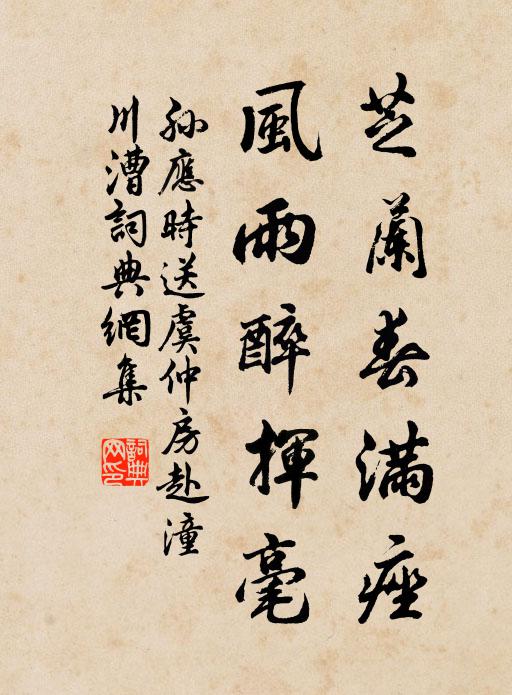 芝蘭春滿痤
風雨醉揮毫
孫應時送虞仲房赴潼
川漕詞典網集
詞典網印